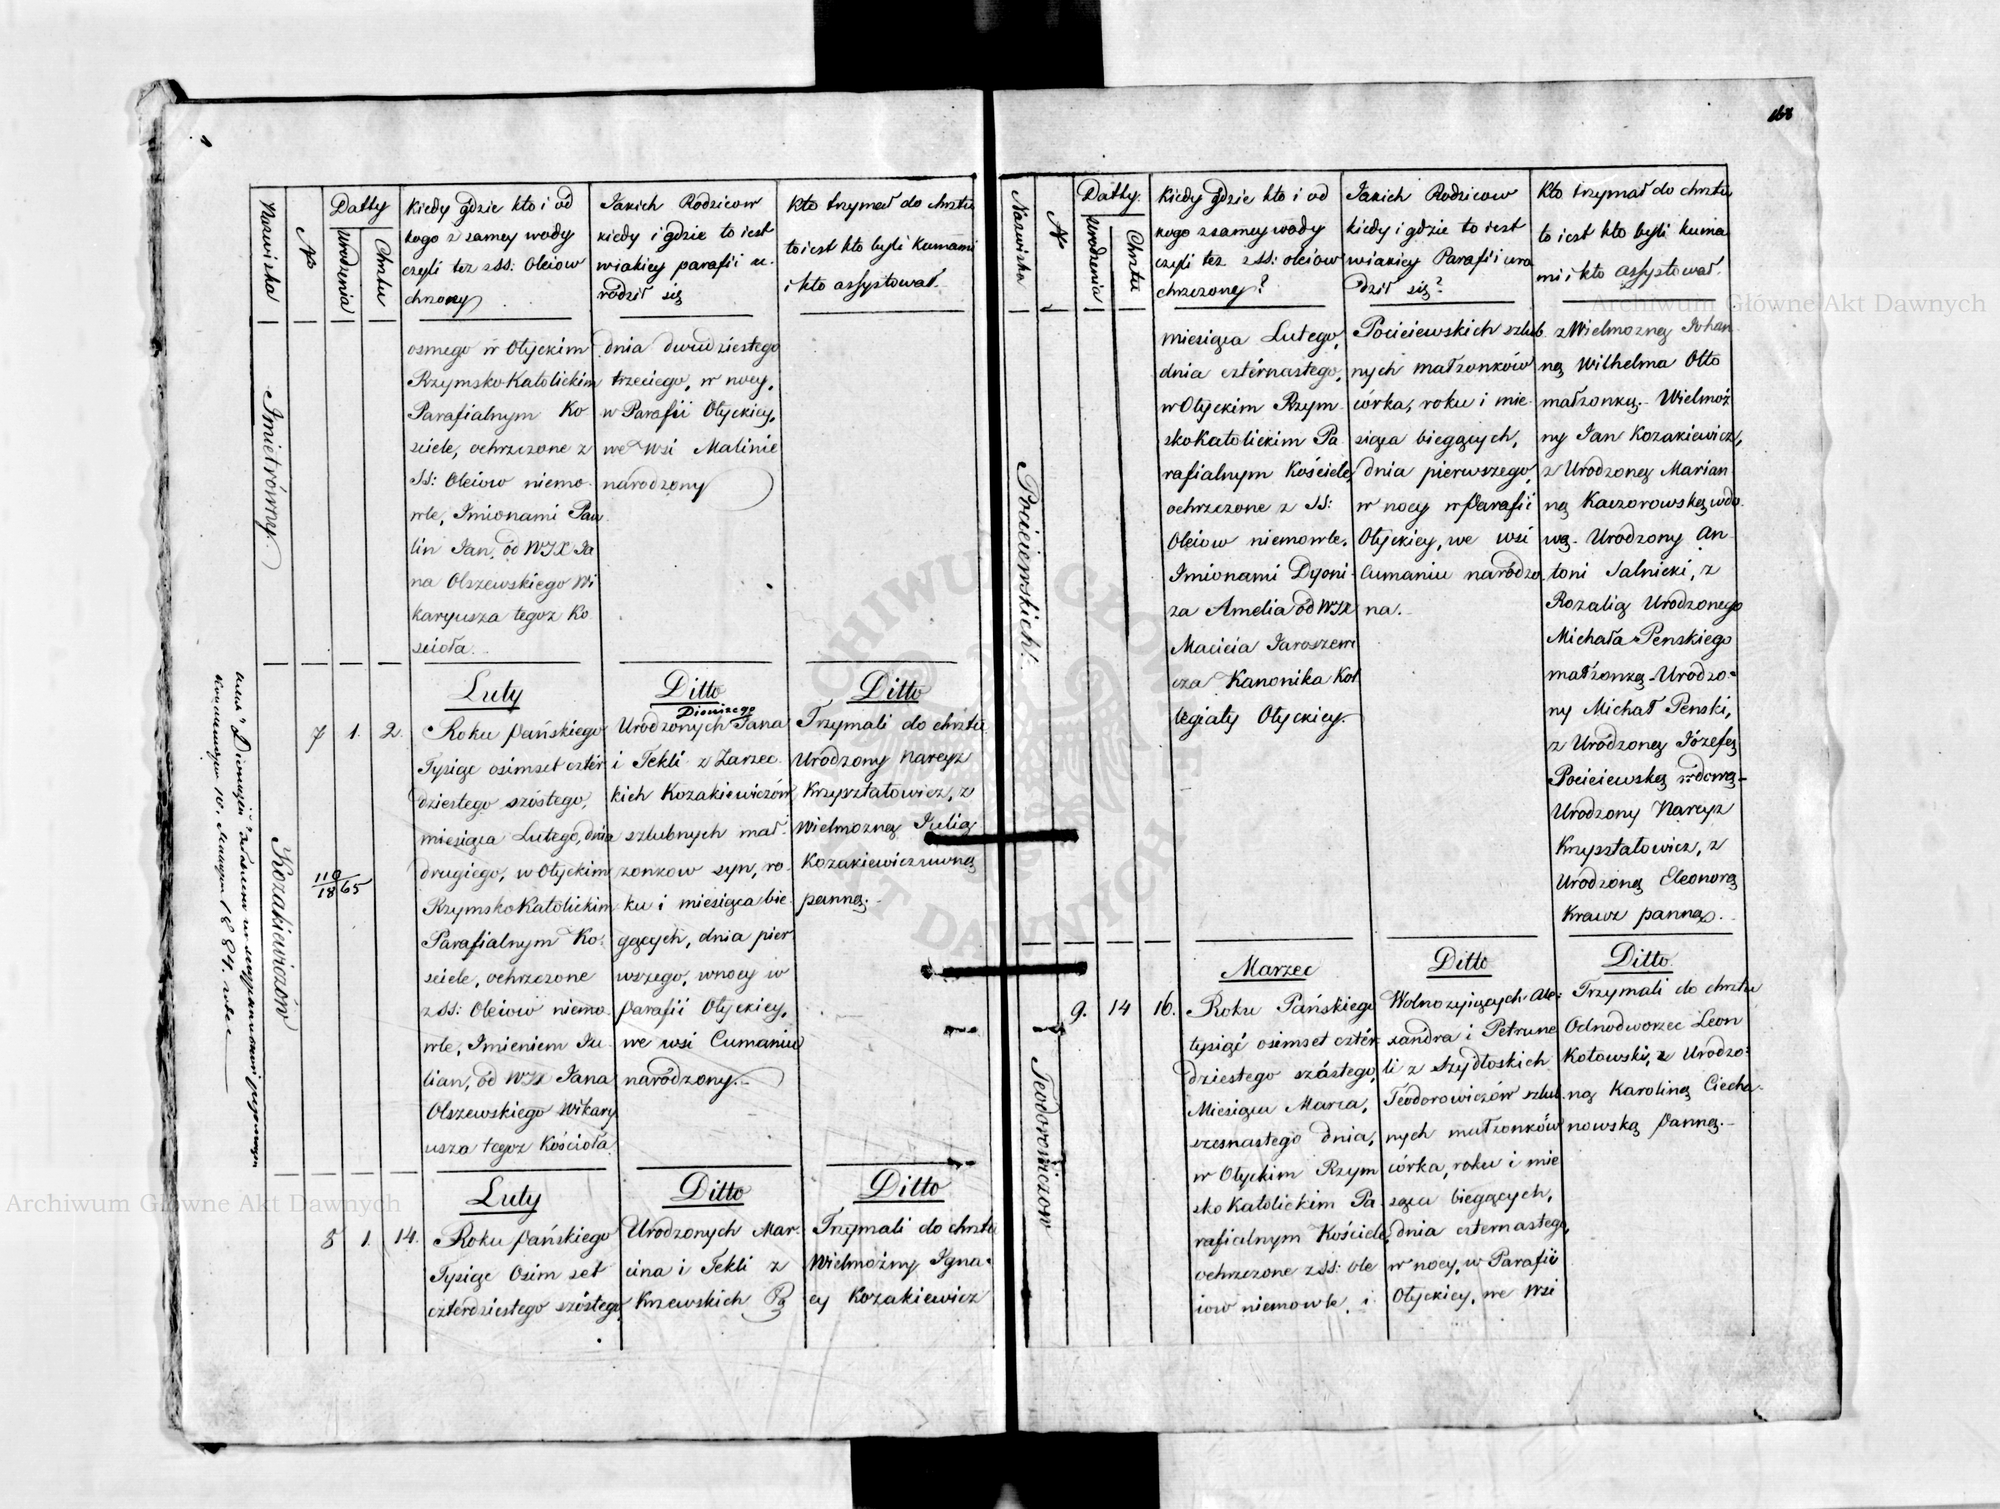 168
Nazwiska
№
Datty
Urodzenia
Chrztu
Kiedy gdzie kto i od
kogo z samey wody
czyli tez z SS: Oleiow
chrzczony
Jakich Rodzicow
kiedy i gdzie to iest
w iakiey parafii u-
rodził się
Kto trzymał do chrztu
to iest kto byli Kumami
i kto assystował.
Imietrówny.
osmego w Ołyckim
Rzymsko Katolickim
Parafialnym Ko
sciele, ochrzczone z
SS: Oleiow niemo-
wle, Imionami Pau
lin Jan, od WJX Ja
na Olszewskiego Wi
karyusza tegoz Ko
scioła.
dnia dwudziestego
trzeciego, w nocy,
w Parafii Ołyckiey,
we Wsi Malinie
narodzony
Kozakiewiczów
7
1.
2.
110
1865
Luty
Roku Pańskiego
Tysiąc osimset czter
dziestego szóstego,
miesiąca Lutego, dnia
drugiego, w Ołyckim
Rzymsko Katolickim
Parafialnym Ko-
sciele, ochrzczone
z SS: Oleiow niemo-
wle, Imieniem Ju-
lian, od WJX Jana
Olszewskiego Wikary
usza tegoz Kościoła.
Ditto
Dionizego
Urodzonych Jana
i Tekli z Zarzec-
kich Kozakiewiczów
szlubnych mał-
zonkow syn, ro-
ku i miesiąca bie-
gących, dnia pier
wszego, w nocy w
Parafii Ołyckiey,
we wsi Cumaniu
narodzony.
Ditto
Trzymali do chrztu
Urodzony Narcyz
Krzysztatowicz, z
Wielmozną Julią
Kozakiewiczuwną
panną.
8
1.
14.
Luty
Roku Pańskiego
Tysiąc Osim set
czterdziestego szóstego,
Ditto
Urodzonych Mar-
cina i Tekli z
Krzewskich Po
Ditto
Trzymali do chrztu
Wielmożny Igna-
cy Kozakiewicz
Nazwiska
№
Datty.
Urodzenia
Chrztu
Kiedy gdzie kto i od
kogo z samey wody
czyli tez z SS: oleiów
chrzczony?
Jakich Rodzicow
kiedy i gdzie to iest
w iakiey Parafii uro
dził się?
Kto trzymał do chrztu
to iest kto byli kuma
mi i kto assystował.
Pocieiewskich.
miesiąca Lutego,
dnia czternastego,
w Ołyckim Rzym-
sko Katolickim Pa
rafialnym Kościele,
ochrzczone z SS:
Oleiow niemowle,
Imionami Dyoni-
za Amelia od WJX
Macieia Jaroszewi
cza Kanonika Kol
legiaty Ołyckiey.
Pocieiewskich szlub
nych małzonków
córka, roku i mie-
siąca biegących,
dnia pierwszego,
w nocy w Parafii
Ołyckiey, we wsi
Cumaniu narodzo
na.
z Wielmozną Johan-
ną Wilhelma Otto
małzonką. Wielmoż
ny Jan Kozakiewicz,
z Urodzoną Marian
ną Kaczorowską wdo
wą. Urodzony An-
toni Salnicki, z
Rozalią Urodzonego
Michała Penskiego
małżonką. Urodzo-
ny Michał Penski,
z Urodzoną Józefą
Pocieiewską wdową-
Urodzony Narcyz
Krzysztatowicz, z
Urodzoną Eleonorą
Krauz panną.
Teodorowiczow
9.
14
16.
Marzec
Roku Pańskiego
tysiąć osimset czter
dziestego szóstego,
Miesiąca Marca,
szesnastego dnia,
w Ołyckim Rzym
sko Katolickim Pa
rafialnym Kościele,
ochrzczone z SS: ole
iow niemowle, i
Ditto
Wolnozyiących Ale-
xandra i Petrune
li z Szydłoskich
Teodorowiczów szlub-
nych małzonków
córka, roku i mie
siąca biegących,
dnia czternastego,
w nocy, w Parafii
Ołyckiey, we Wsi
Ditto
Trzymali do chrztu
Odnodworzec Leon
Kotowski, z Urodzo-
ną Karoliną Ciecha-
nowską Panną.
Archiwum Główne Akt Dawnych
Archiwum Główne Akt Dawnych
ARCHIWUM GŁÓWNE AKT DAWNYCH